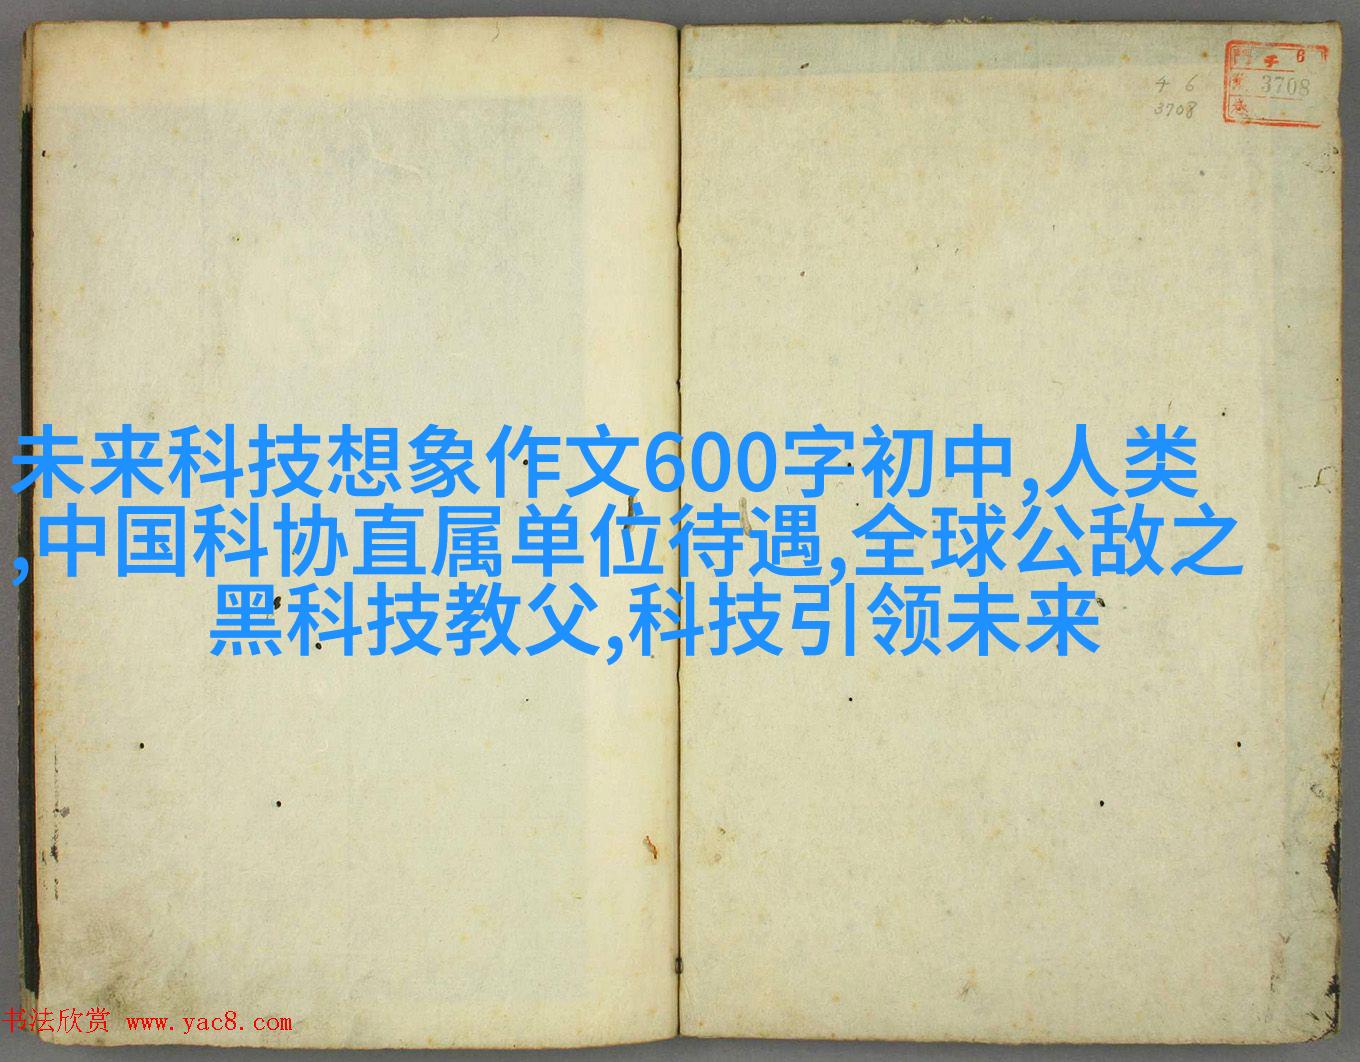 4 6
3708
6
3708
未来科技想象作文600字初中,人类
,中国科协直属单位待遇,全球公敌之
黑科技教父,科技引领未来
书法欣赏 www.yac8.com